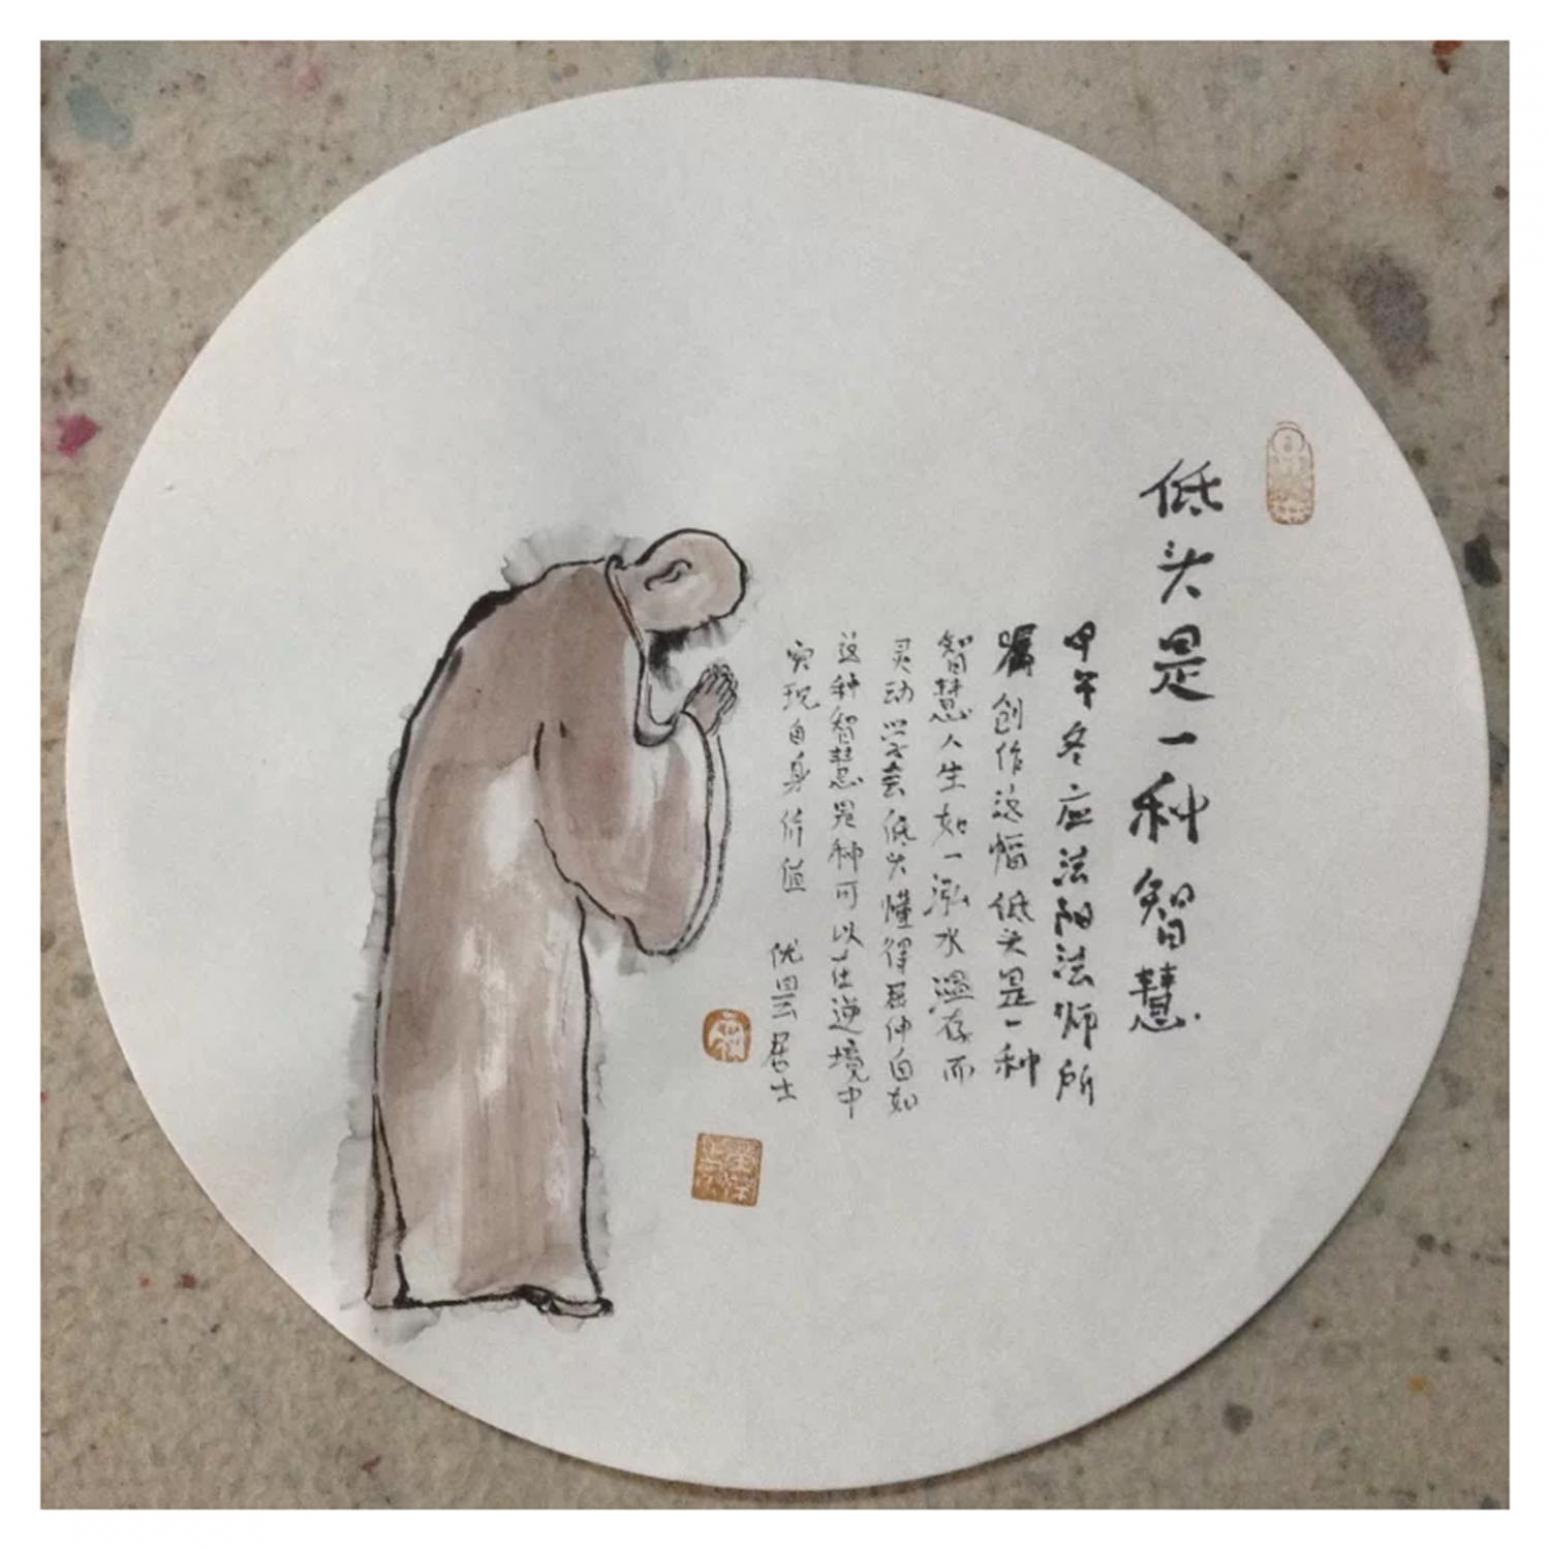 低头是一种智慧
甲午冬应法阳法师所
嘱创作这幅低头是一种
智慧人生如一泓水温存而
灵动学会低头懂得屈伸自如
这种智慧是种可以在逆境中
实现自身价值 优昙居士